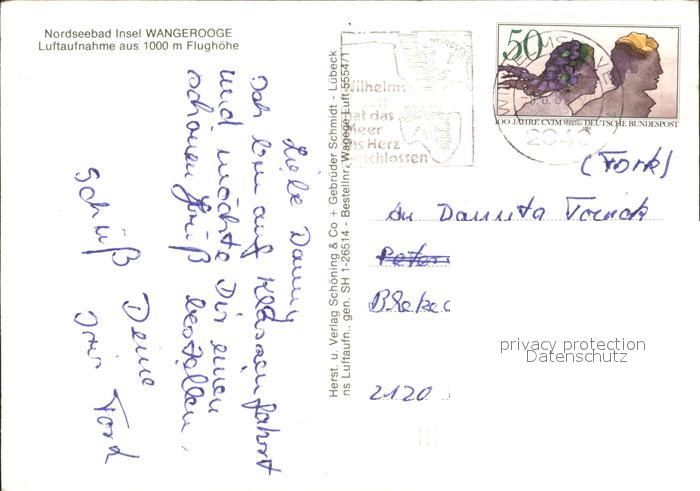 Nordseebad Insel WANGEROOGE
Luftaufnahme aus 1000 m Flughöhe
Liebe Danny
Ich bin auf Klassenfahrt
und möchte Dir einen
schönen Gruß bestellen.
Schüß Deine
Iris Tork
Herst. u. Verlag Schöning & Co + Gebrüder Schmidt - Lübeck
ns Luftaufn., gen. SH 1-26514 - Bestellnr. Wagege Luft 5554/1
Wilhelms
hat das
Meer
ins Herz
geschlossen
50
100 JAHRE CVJM DEUTSCHE BUNDESPOST
2940
(Tork)
An Dannita
Peter
2120
privacy protection
Datenschutz